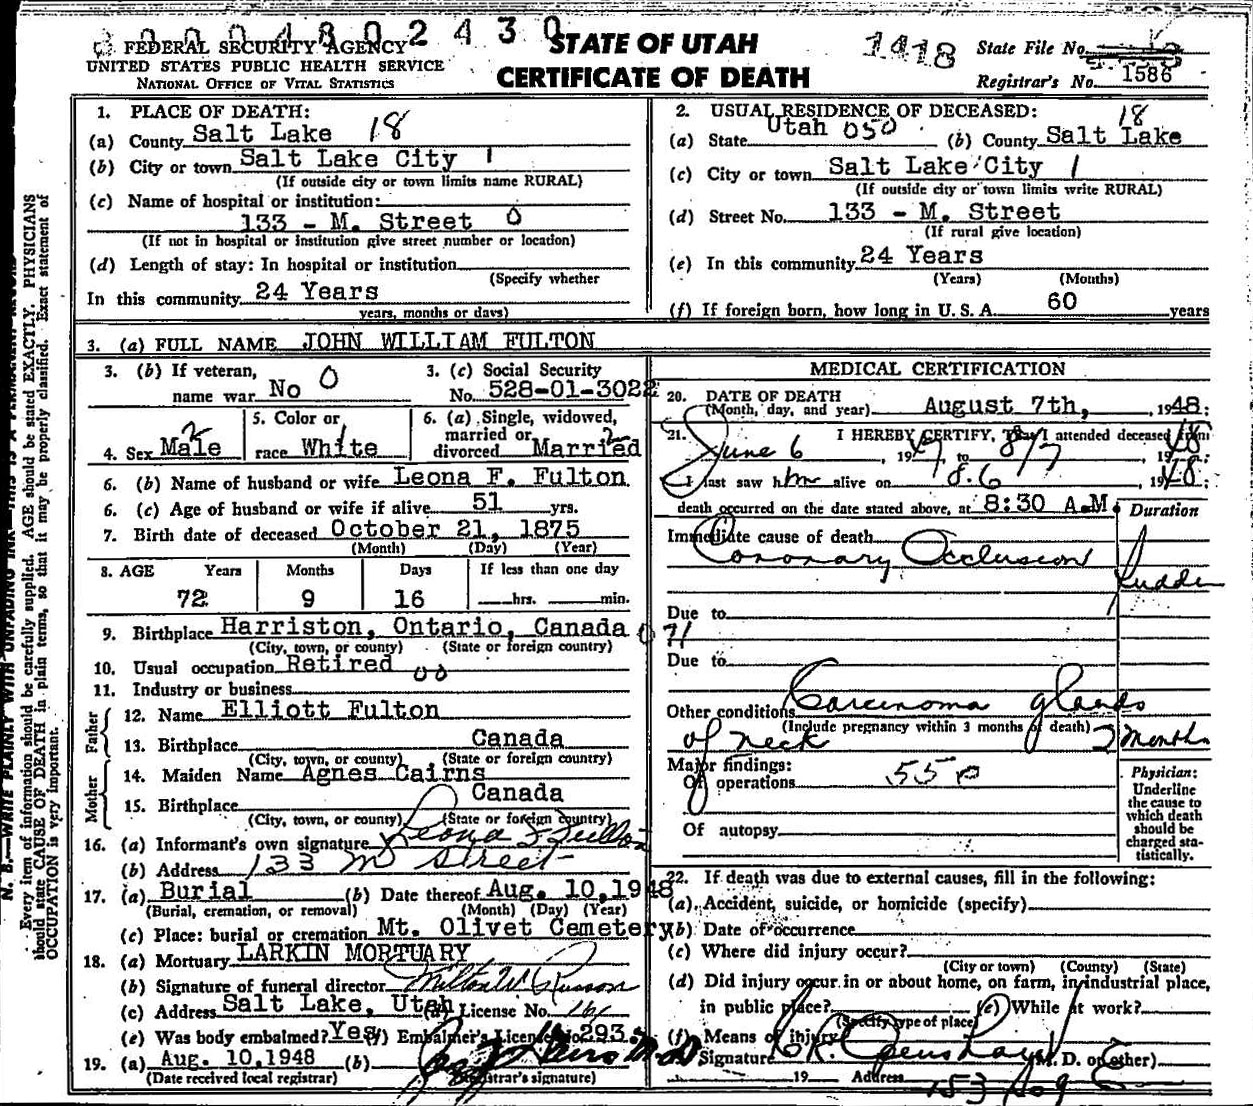 0004802430
FEDERAL SECURITY AGENCY
UNITED STATES PUBLIC HEALTH SERVICE
NATIONAL OFFICE OF VITAL STATISTICS
STATE OF UTAH
CERTIFICATE OF DEATH
1418
State File No.
Registrar's No. 1586
1. PLACE OF DEATH:
(a) County Salt Lake 18
(b) City or town Salt Lake City 1
(If outside city or town limits name RURAL)
(c) Name of hospital or institution:
133 - M. Street 0
(If not in hospital or institution give street number or location)
(d) Length of stay: In hospital or institution
(Specify whether
In this community 24 Years
years, months or days)
2. USUAL RESIDENCE OF DECEASED:
(a) State Utah 050 (b) County Salt Lake 18
(c) City or town Salt Lake City 1
(If outside city or town limits write RURAL)
(d) Street No. 133 - M. Street
(If rural give location)
(e) In this community 24 Years
(Years) (Months)
(f) If foreign born, how long in U. S. A. 60 years
3. (a) FULL NAME JOHN WILLIAM FULTON
3. (b) If veteran, name war No 0
3. (c) Social Security No. 528-01-3022
4. Sex Male 2
5. Color or race White 1
6. (a) Single, widowed, married or divorced Married 2
6. (b) Name of husband or wife Leona F. Fulton
6. (c) Age of husband or wife if alive 51 yrs.
7. Birth date of deceased October 21, 1875
(Month) (Day) (Year)
8. AGE Years Months Days If less than one day
72 9 16 hrs. min.
9. Birthplace Harriston, Ontario, Canada 071
(City, town, or county) (State or foreign country)
10. Usual occupation Retired 00
11. Industry or business
Father
12. Name Elliott Fulton
13. Birthplace Canada
(City, town, or county) (State or foreign country)
Mother
14. Maiden Name Agnes Cairns
15. Birthplace Canada
(City, town, or county) (State or foreign country)
16. (a) Informant's own signature Leona F Fulton
(b) Address 133 M Street
17. (a) Burial (b) Date thereof Aug. 10, 1948
(Burial, cremation, or removal) (Month) (Day) (Year)
(c) Place: burial or cremation Mt. Olivet Cemetery
18. (a) Mortuary LARKIN MORTUARY
(b) Signature of funeral director Milton W
(c) Address Salt Lake, Utah (d) License No. 161
(e) Was body embalmed? Yes (f) Embalmer's License No 293
19. (a) Aug. 10, 1948 (b)
(Date received local registrar) (Registrar's signature)
MEDICAL CERTIFICATION
20. DATE OF DEATH
(Month, day, and year) August 7th, 1948:
21. I HEREBY CERTIFY, That I attended deceased from
June 6, 1947 to 8/7, 1948
I last saw him alive on 8.6, 1948;
death occurred on the date stated above, at 8:30 A.M.
Duration
Immediate cause of death
Coronary Occlusion
Sudden
Due to
Due to
Other conditions Carcinoma glands
(Include pregnancy within 3 months of death)
of neck 2 months
Major findings:
Of operations 550
Of autopsy
Physician:
Underline
the cause to
which death
should be
charged sta-
tistically.
22. If death was due to external causes, fill in the following:
(a) Accident, suicide, or homicide (specify)
(b) Date of occurrence
(c) Where did injury occur?
(City or town) (County) (State)
(d) Did injury occur in or about home, on farm, in industrial place,
in public place? (e) While at work?
(Specify type of place)
(f) Means of injury
Signature (M. D. or other)
19 Address 153 So
N. B.—WRITE PLAINLY WITH UNFADING INK—THIS IS A PERMANENT RECORD
Every item of information should be carefully supplied. AGE should be stated EXACTLY. PHYSICIANS
should state CAUSE OF DEATH in plain terms, so that it may be properly classified. Exact statement of
OCCUPATION is very important.